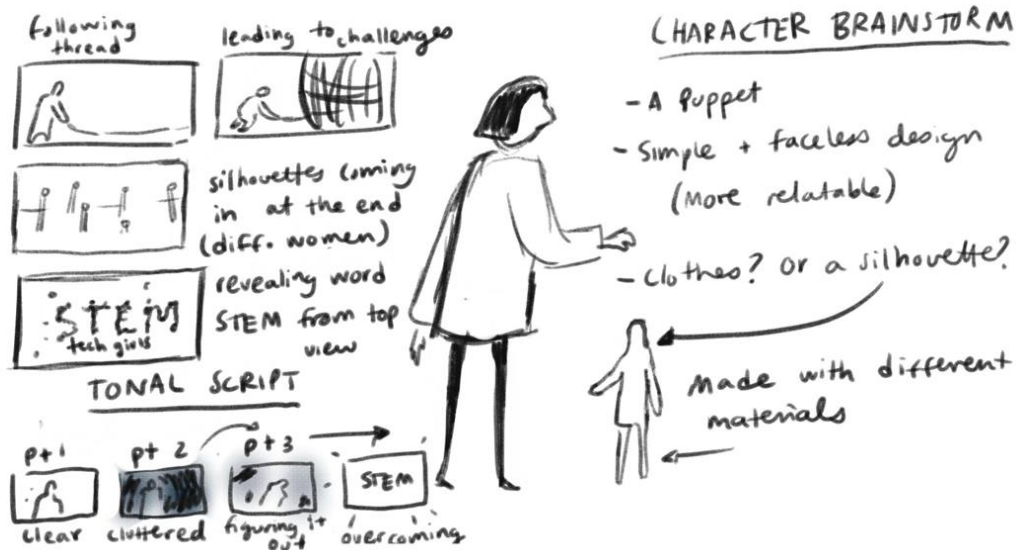 following
thread
leading to challenges
silhouettes coming
in at the end
(diff. women)
STEM
tech girls
revealing word
STEM from top
view
TONAL SCRIPT
pt 1
pt 2
pt 3
STEM
clear
cluttered
figuring it
out
overcoming
CHARACTER BRAINSTORM
- A puppet
- Simple + faceless design
(More relatable)
- Clothes? or a silhouette?
Made with different
materials